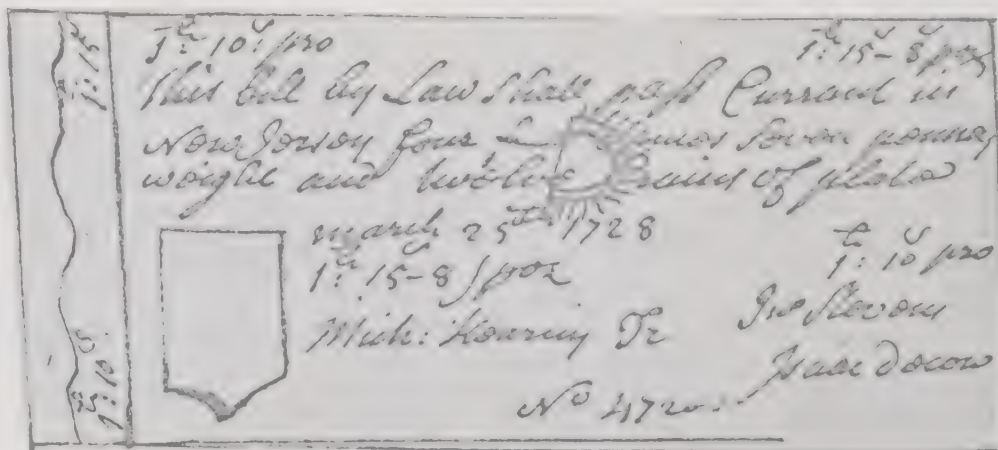 1: 10: pro 1: 15-8 poz
this bill by Law Shall pass Currant in
New Jersey four ounces Seven penney
weight and twelve Grains of plate
march 25th 1728
1: 15-8 poz 1: 10 pro
Mich: Kearny Tr Jno Stevens
Isaac Decow
No 4720
1: 15
1: 10